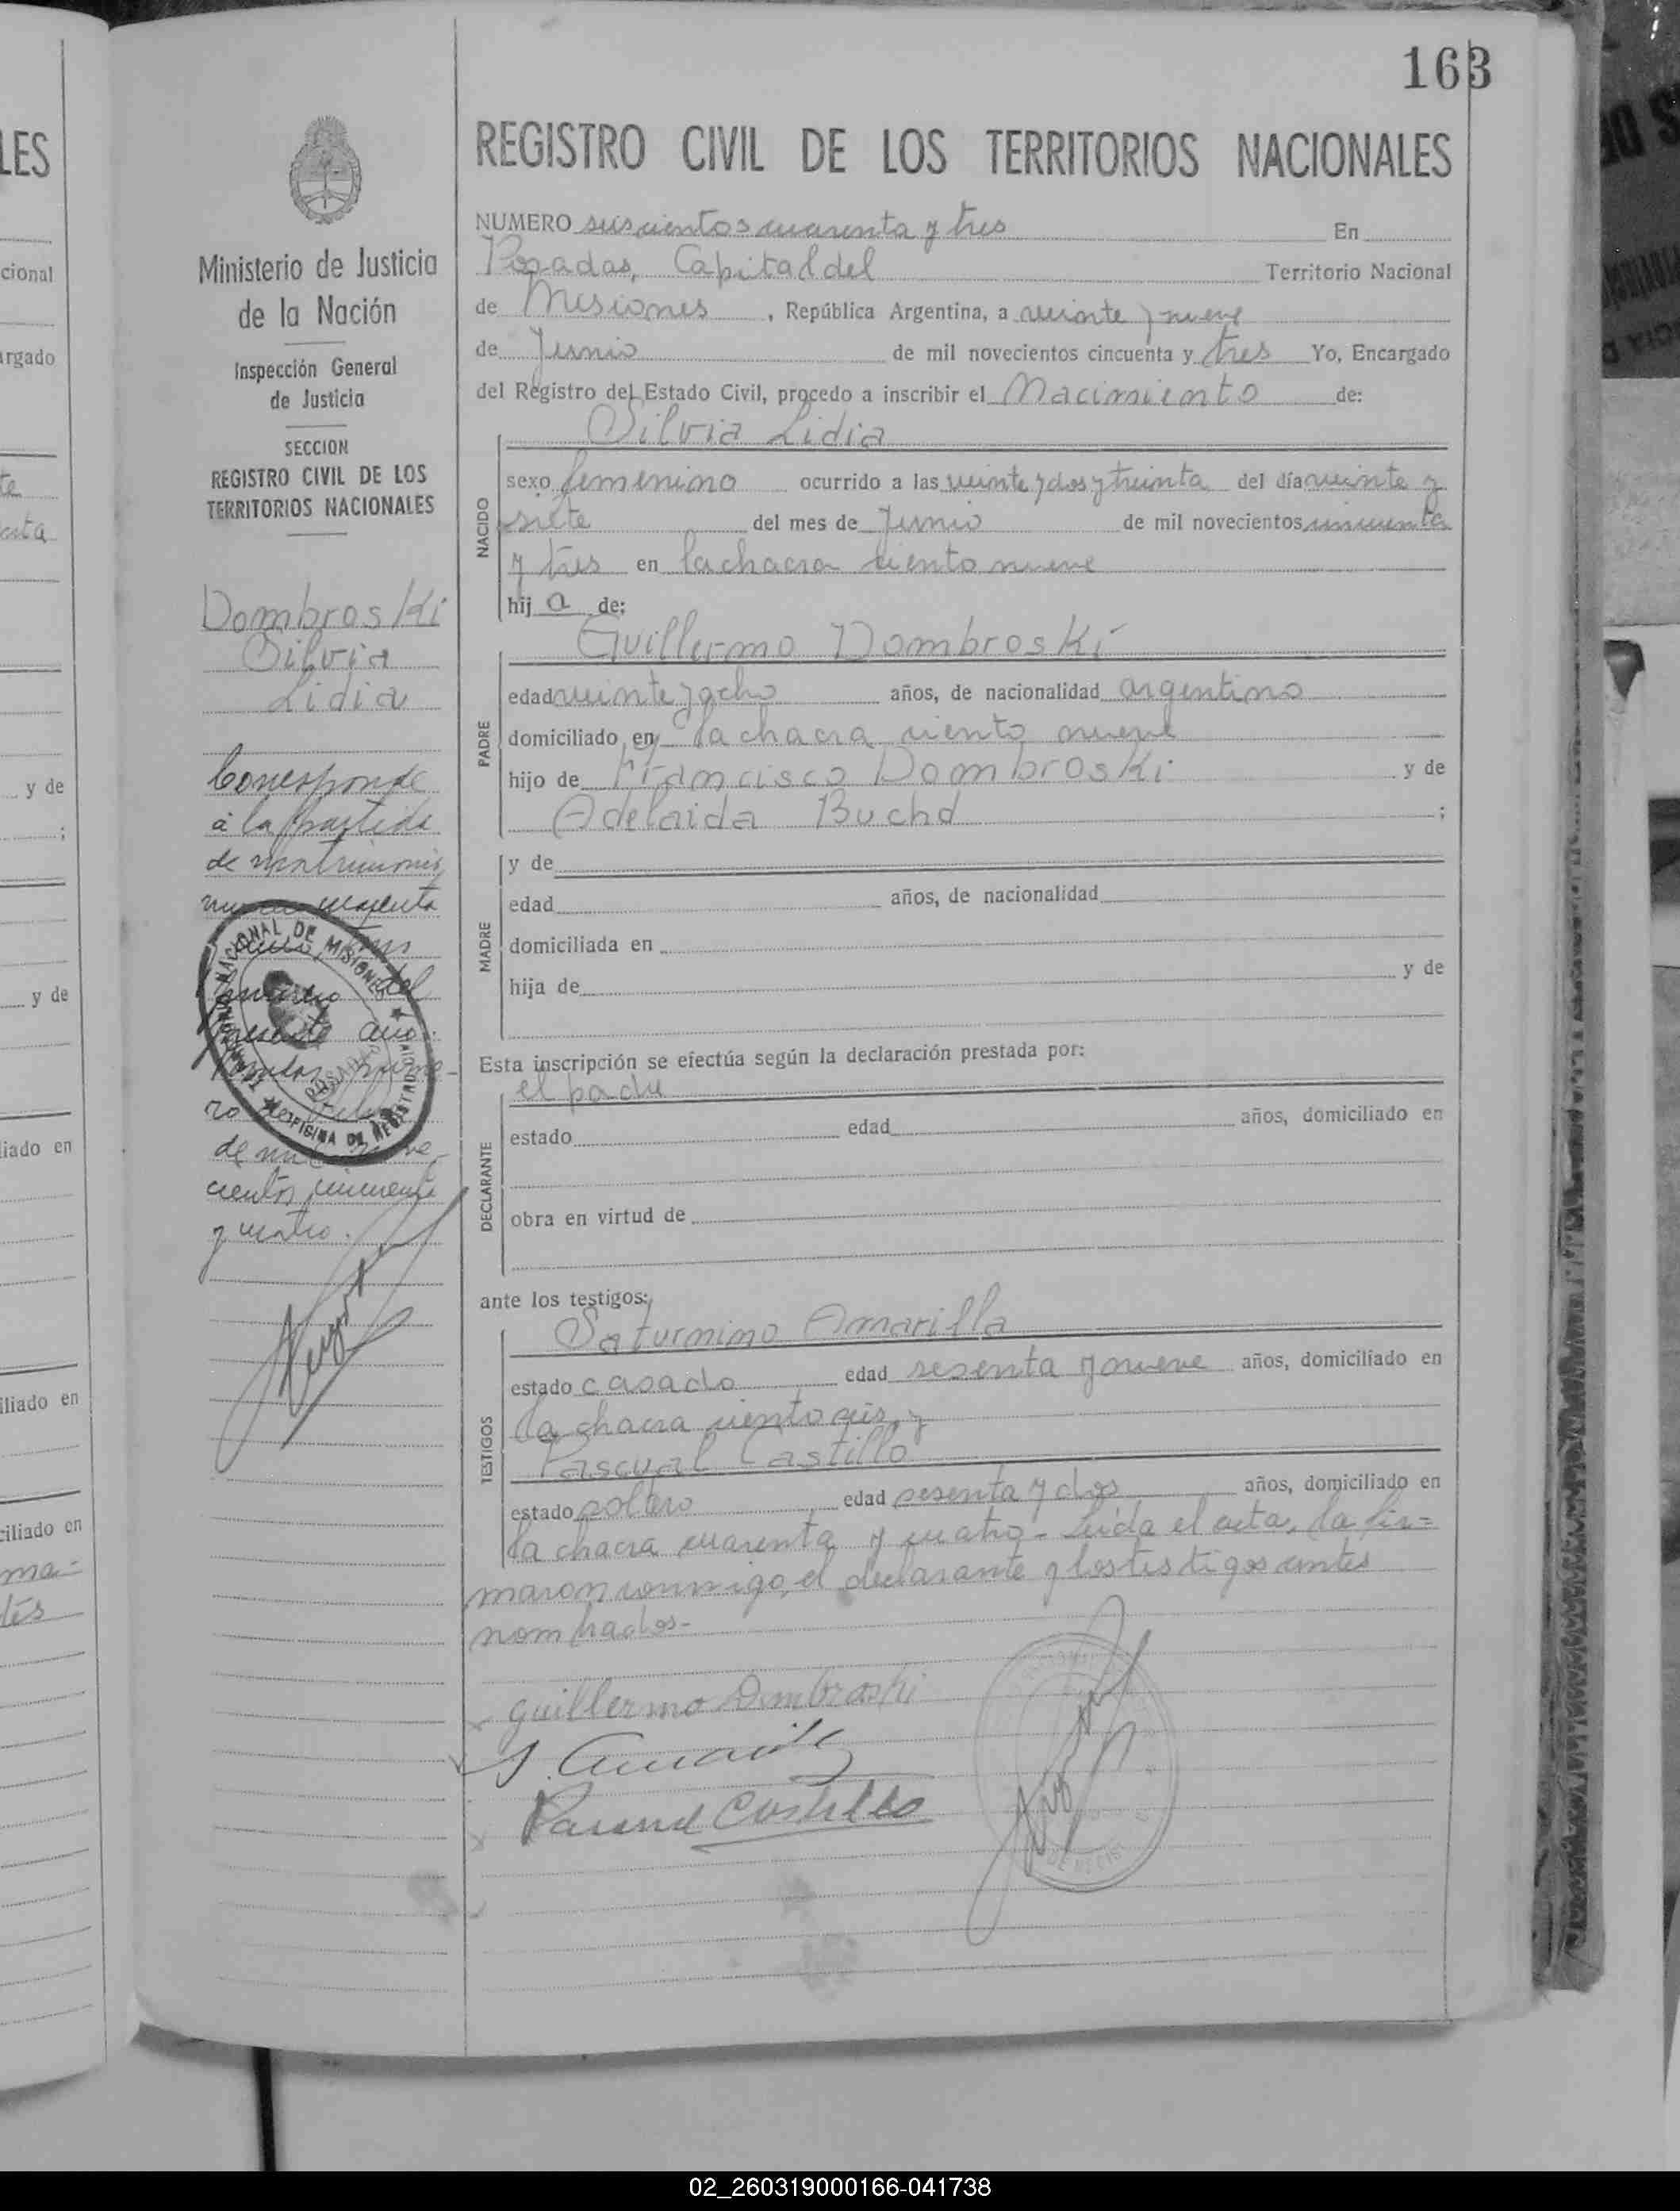 163
REGISTRO CIVIL DE LOS TERRITORIOS NACIONALES
NUMERO seiscientos cuarenta y tres En
Posadas, Capital del Territorio Nacional
de Misiones, República Argentina, a veinte y nueve
de Junio de mil novecientos cincuenta y tres Yo, Encargado
del Registro del Estado Civil, procedo a inscribir el Nacimiento de:
Silvia Lidia
NACIDO
sexo femenino ocurrido a las veinte y dos y treinta del día veinte y
siete del mes de Junio de mil novecientos cincuenta
y tres en la chacra ciento nueve
hij a de:
Guillermo Dombroski
PADRE
edad veinte y ocho años, de nacionalidad argentino
domiciliado en la chacra ciento nueve
hijo de Francisco Dombroski y de
Adelaida Buchd ;
MADRE
y de
edad años, de nacionalidad
domiciliada en
hija de y de
Esta inscripción se efectúa según la declaración prestada por:
el padre
DECLARANTE
estado edad años, domiciliado en
obra en virtud de
ante los testigos:
Saturnino Amarilla
TESTIGOS
estado casado edad sesenta y nueve años, domiciliado en
la chacra ciento seis, y
Pascual Castillo
estado soltero edad sesenta y dos años, domiciliado en
la chacra cuarenta y cuatro - Leída el acta, la fir=
maron conmigo, el declarante y los testigos antes
nombrados-
guillermo Dombroski
S. Amarilla
Pascual Castillo
Ministerio de Justicia
de la Nación
Inspección General
de Justicia
SECCION
REGISTRO CIVIL DE LOS
TERRITORIOS NACIONALES
Dombroski
Silvia
Lidia
Corresponde
a la partida
de matrimonio
cuarenta
del
presente año.
Posadas,
ro de
de mil nove-
cientos cincuenta
y cuatro.
NACIONAL DE MISIONES
POSADAS
OFICINA DE REGISTRO CIVIL
LES
cional
argado
te
y de
;
y de
liado en
iliado en
ciliado en
ma=
tes
02_260319000166-041738